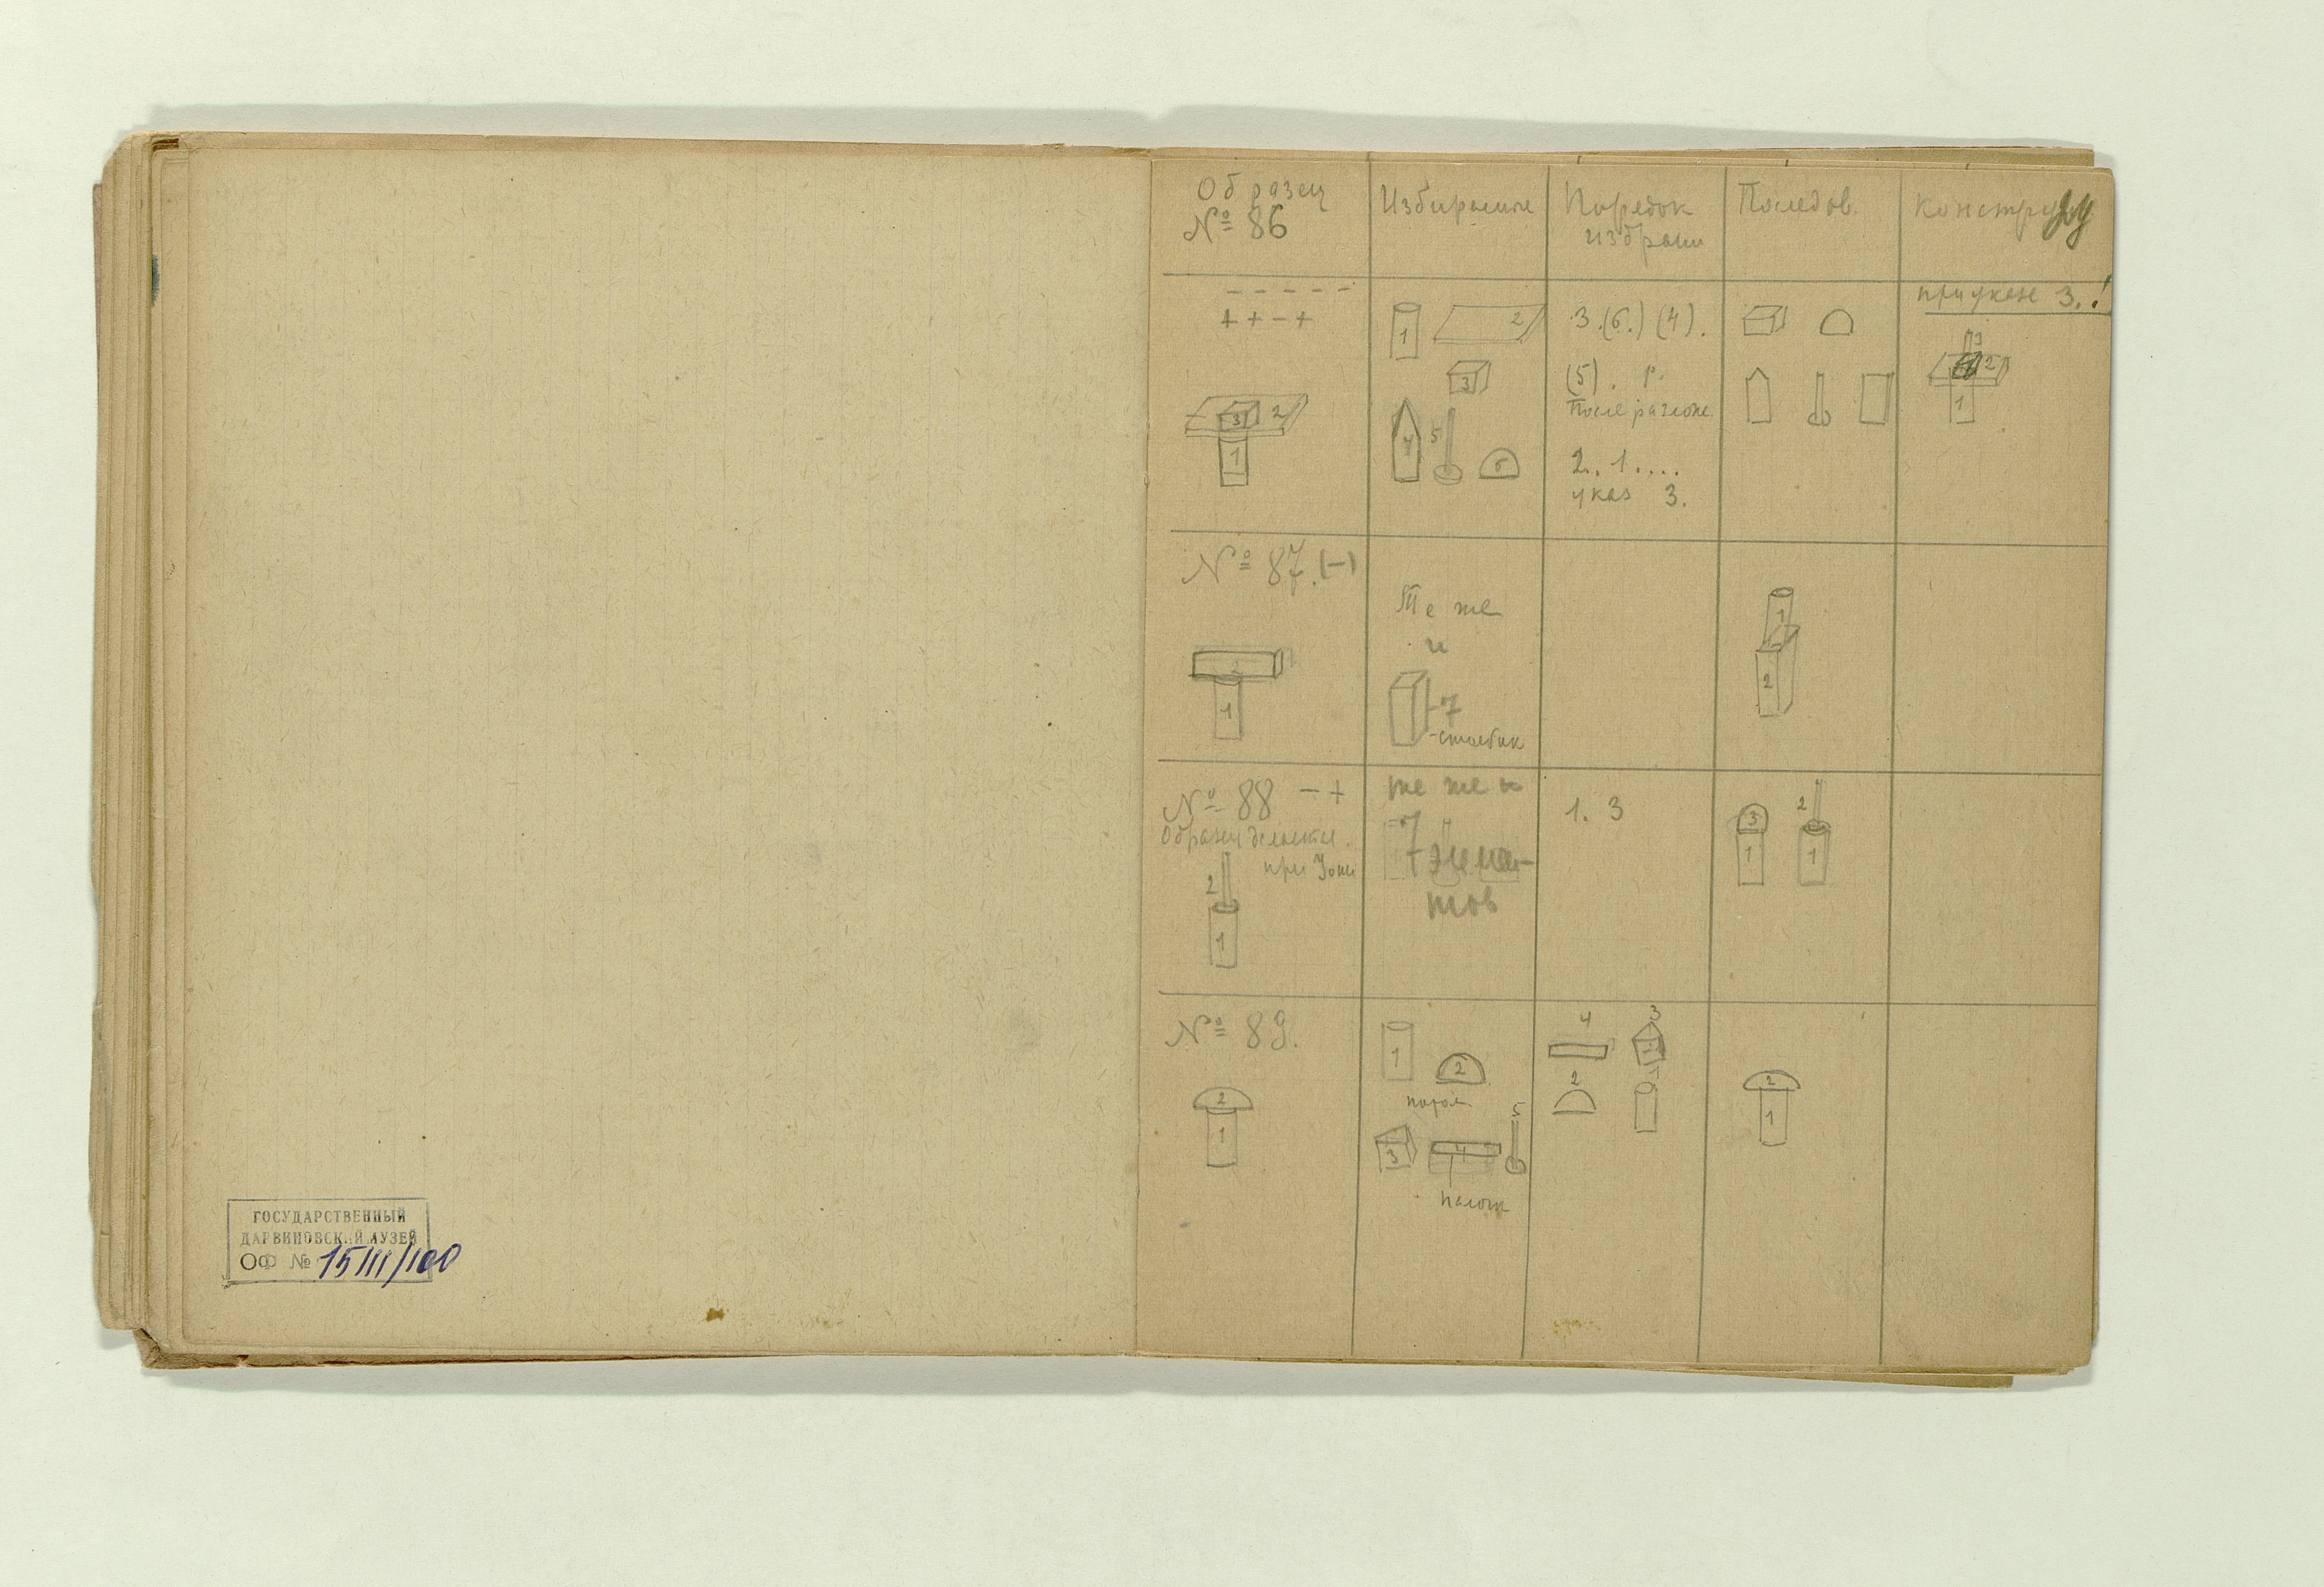 ГОСУДАРСТВЕННЫЙ
ДАРВИНОВСКИЙ МУЗЕЙ
ОФ № 15111/100
Образец
№ 86
Порядок
Последов.
- - - - -
+ + - +
3 2
1
1 2
3
4 5 6
3.(6.) (4).
(5). р.
После
2. 1....
указ 3.
3.!
3
2
1
№ 87.(-)
2
1
Те же
и
7
-столбик
1
2
№ 88 - +
Образец
2
1
те же и
7
7 элемен-
тов
1. 3
3 2
1 1
№ 89.
2
1
1 2
3 4 5
4 3
2
2
1